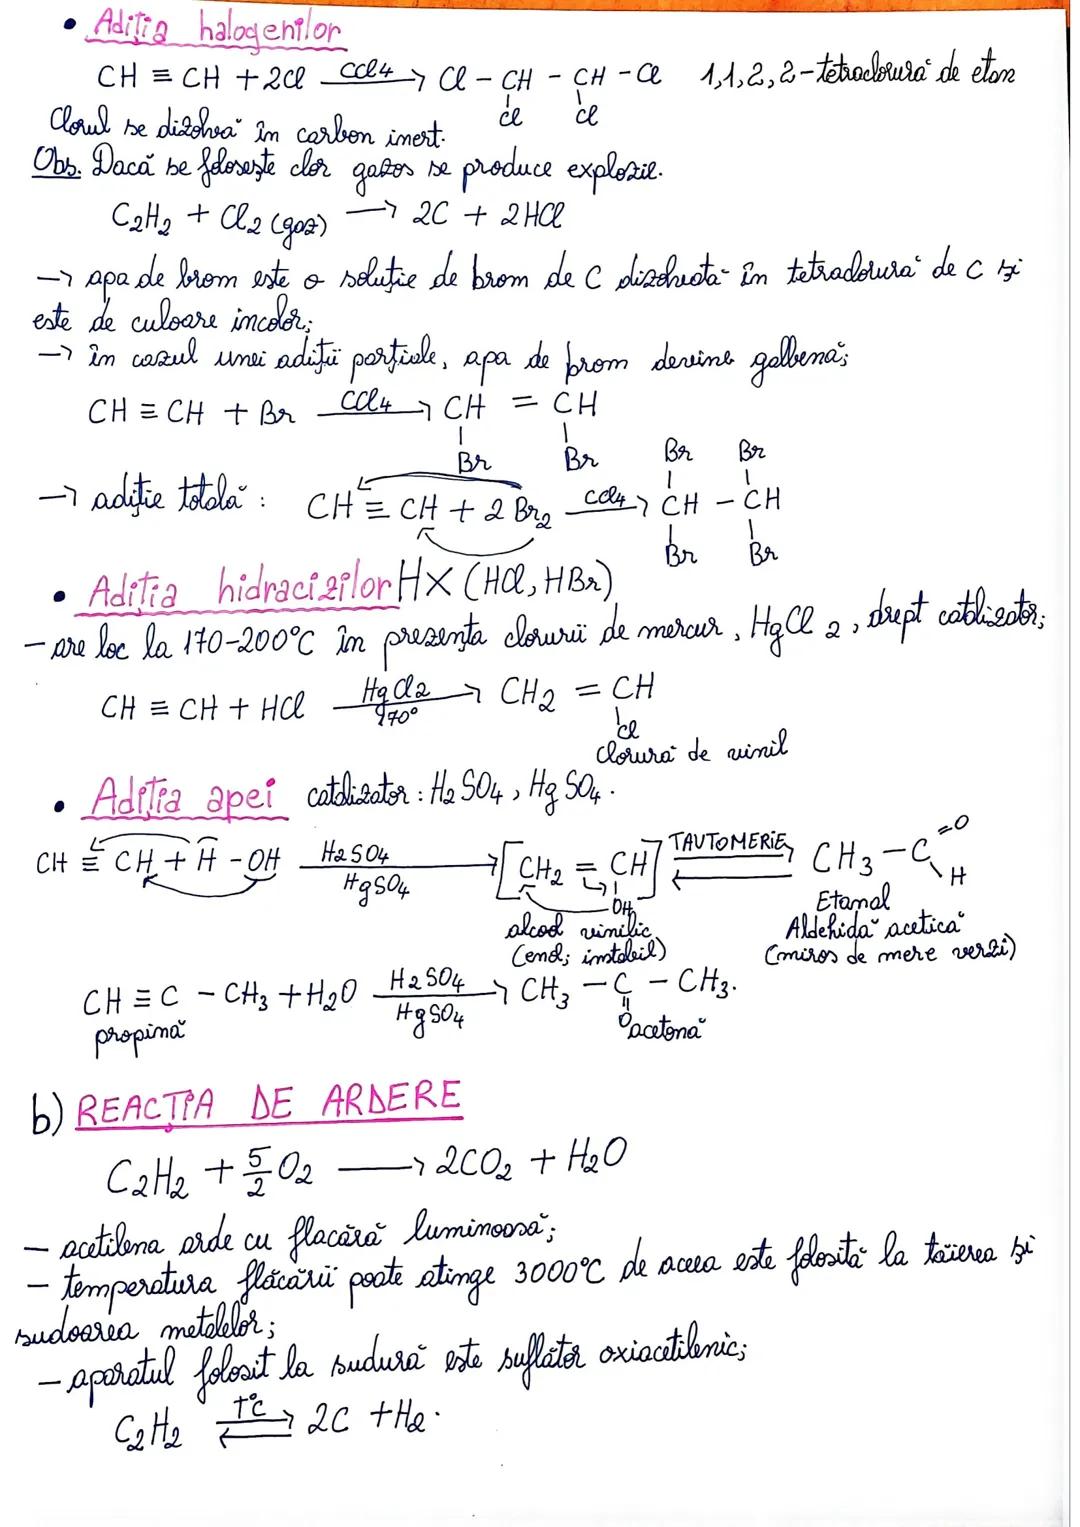 • Adiția halogenilor
CH ≡ CH + 2Cl —CCl4→ Cl - CH - CH - Cl 1,1,2,2-tetraclorură de etan
Cl Cl
Clorul se dizolvă în carbon inert.
Obs. Dacă se folosește clor gazos se produce explozie.
C2H2 + Cl2 (gaz) → 2C + 2HCl
→ apa de brom este o soluție de brom de C dizolvată în tetraclorură de C și
este de culoare incolor;
→ în cazul unei adiții parțiale, apa de brom devine galbenă;
CH ≡ CH + Br —CCl4→ CH = CH
Br Br
Br Br
→ adiție totală: CH ≡ CH + 2 Br2 —CCl4→ CH - CH
Br Br
• Adiția hidracizilor HX (HCl, HBr)
- are loc la 170-200°C în prezența clorurii de mercur, HgCl2, drept catalizator;
CH ≡ CH + HCl —HgCl2 170°→ CH2 = CH
Cl
Clorură de vinil
• Adiția apei catalizator: H2SO4, HgSO4.
CH ≡ CH + H - OH —H2SO4 HgSO4→ [CH2 = CH] TAUTOMERIE ⇌ CH3 - C =O H
OH Etanal
alcool vinilic Aldehidă acetică
(enol; instabil) (miros de mere verzi)
CH ≡ C - CH3 + H2O —H2SO4 HgSO4→ CH3 - C - CH3.
propină O acetonă
b) REACȚIA DE ARDERE
C2H2 + 5/2 O2 → 2CO2 + H2O
- acetilena arde cu flacără luminoasă;
- temperatura flăcării poate atinge 3000°C de aceea este folosită la tăierea și
sudoarea metalelor;
- aparatul folosit la sudură este suflător oxiacetilenic;
C2H2 ⇌ t°C 2C + H2.